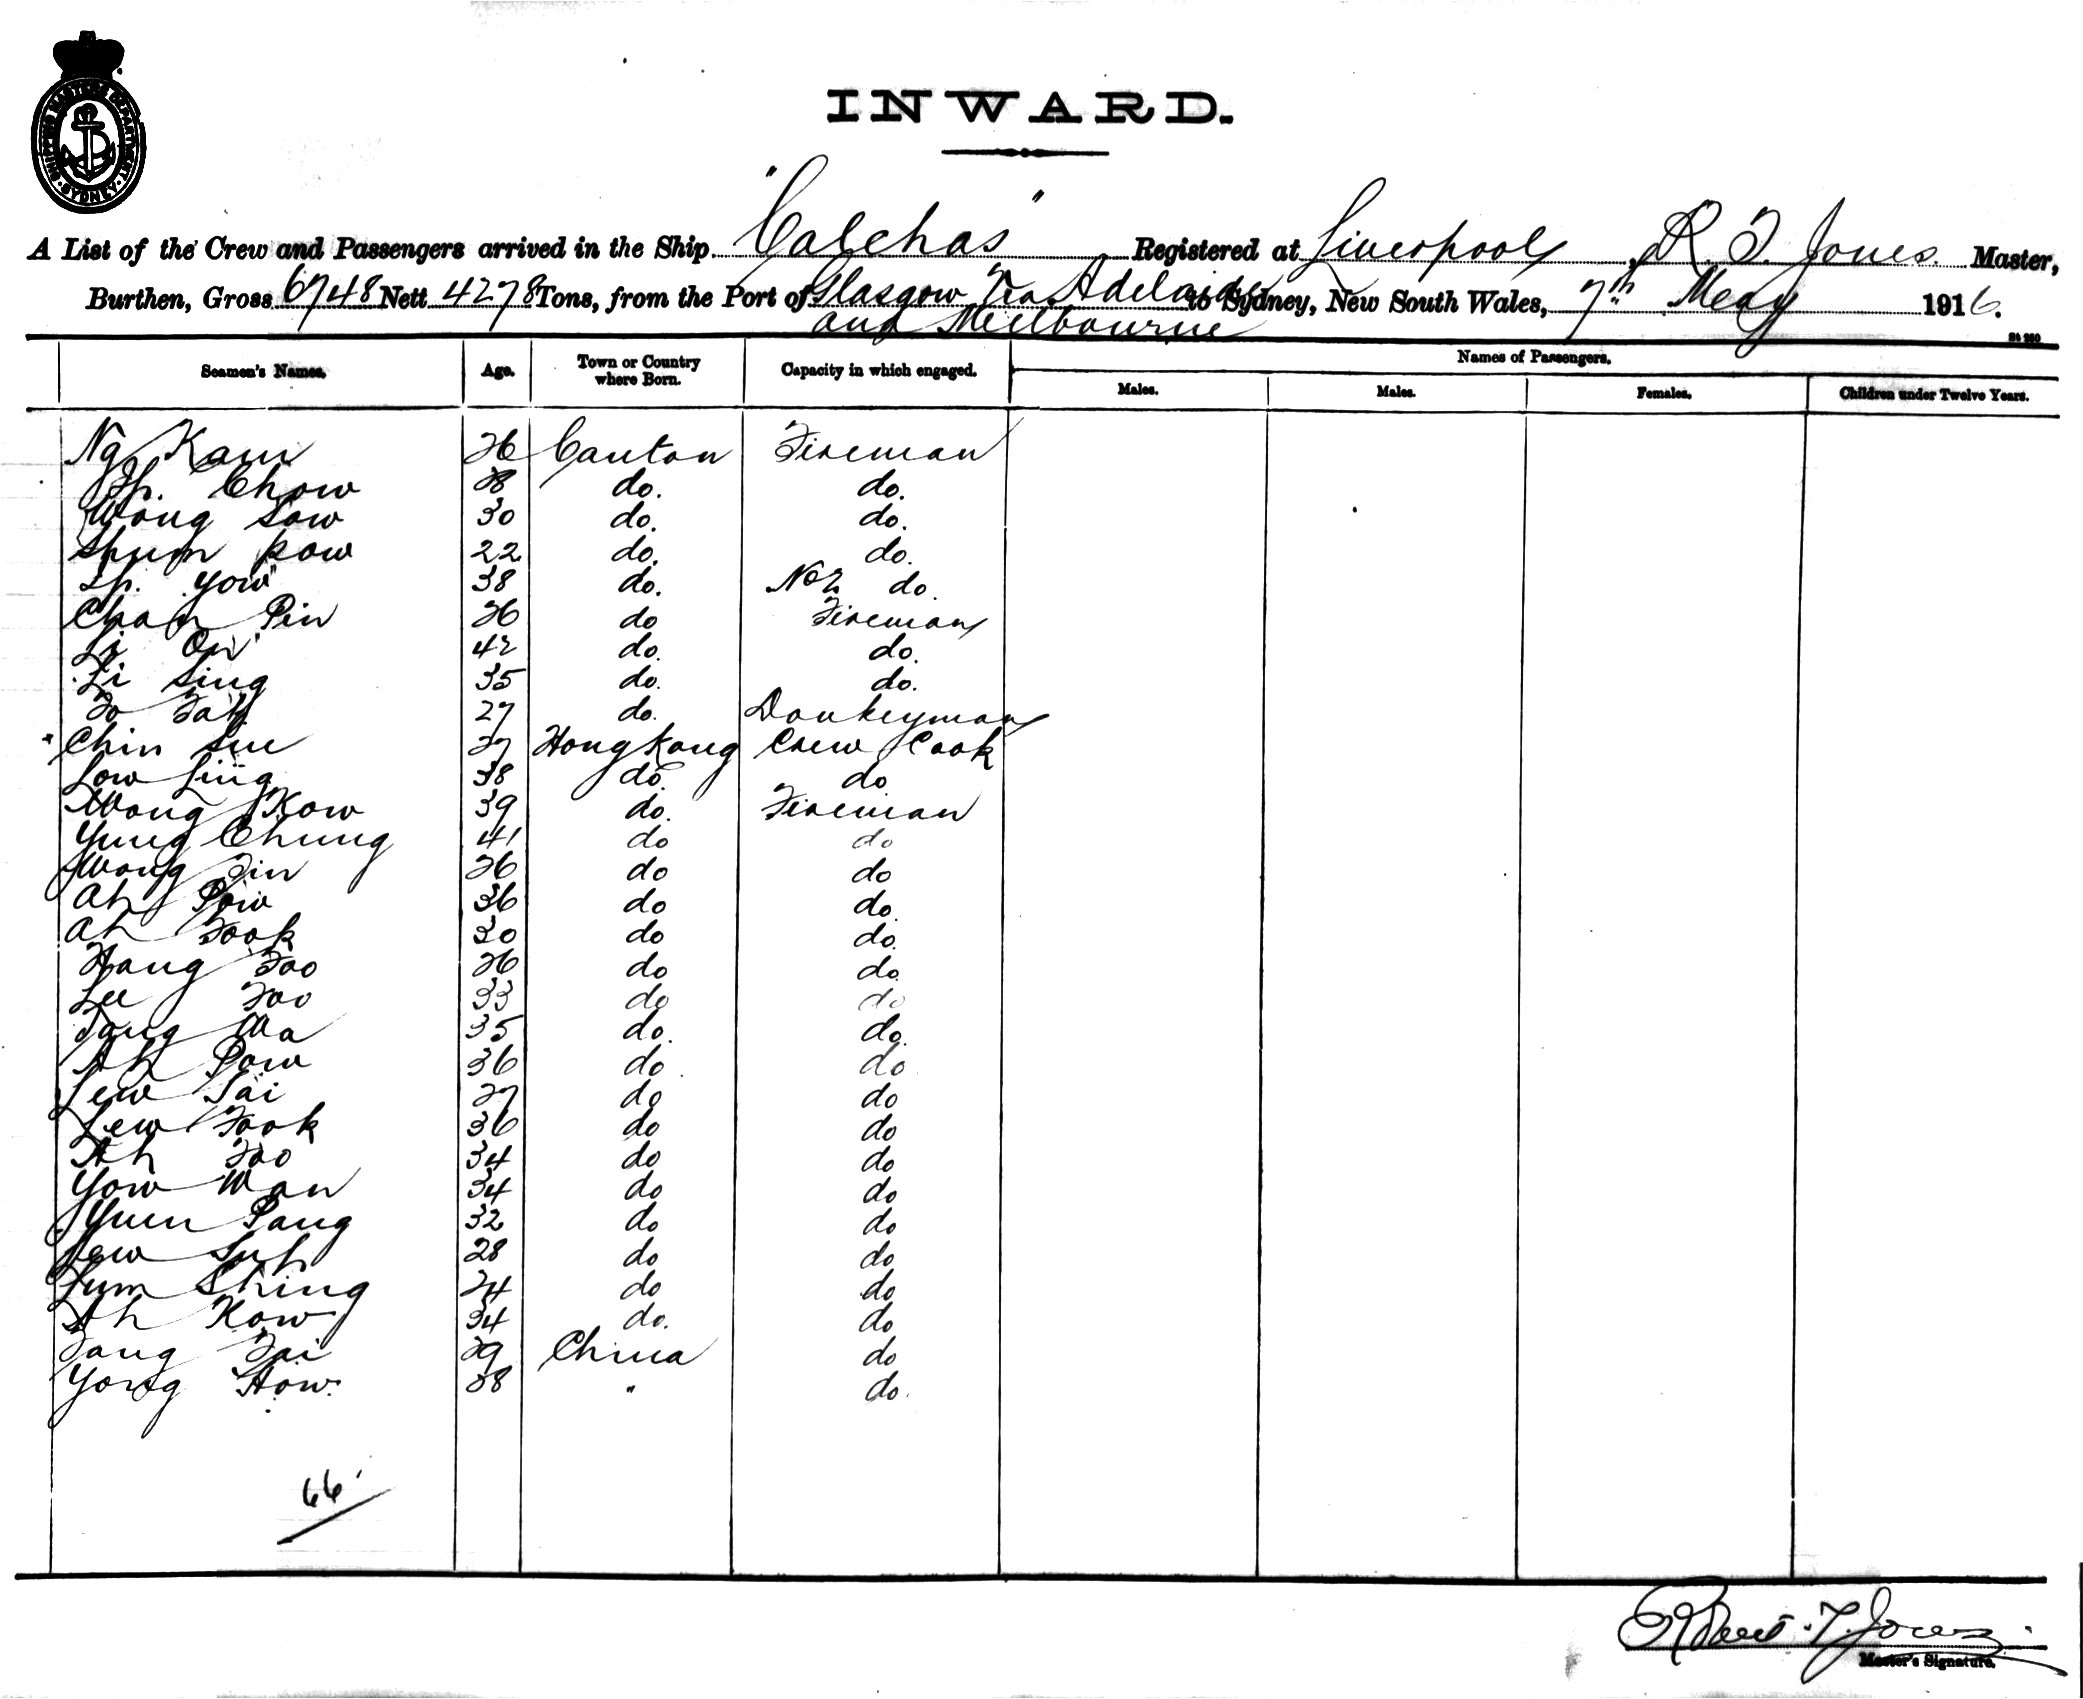 SHIPPING MASTERS DEPARTMENT. SYDNEY.
INWARD.
A List of the Crew and Passengers arrived in the Ship "Calchas" Registered at Liverpool, R. T. Jones Master,
Burthen, Gross 6748 Nett 4278 Tons, from the Port of Glasgow Via Adelaide to Sydney, New South Wales, 7th May 1916.
and Melbourne
Seamen's Names. Age. Town or Country where Born. Capacity in which engaged. Names of Passengers.
Males. Males. Females. Children under Twelve Years.
Ng Kam 26 Canton Fireman
Ip. Chow 28 do. do.
Wong Sow 30 do. do.
Shum Pow 22 do. do.
Ip. Yow 38 do. No 2 do.
Chan Pin 26 do Fireman
Li On 42 do. do.
Li Sing 35 do. do.
Fo Fat 27 do. Donkeyman
Chin Sue 27 Hong Kong Crew Cook
Low Ling 38 do. do
Wong Kow 39 do. Fireman
Yung Chung 41 do do
Wong Fin 26 do do
Ah Pow 36 do do.
Ah Fook 30 do do.
Hang Foo 26 do do.
Lee Foo 33 do do
Tang Wa 35 do. do.
Ah Pow 36 do. do
Lew Tai 27 do do
Lew Fook 36 do do
Ah Foo 34 do do
Yow Wan 34 do do
Yuen Pang 32 do do
Lew Suh 28 do do
Lum Shing 24 do do
Ah Kow 34 do. do
Fang Fai 29 China do
Yong How. 28 " do.
66
Robert T. Jones
Master's Signature.